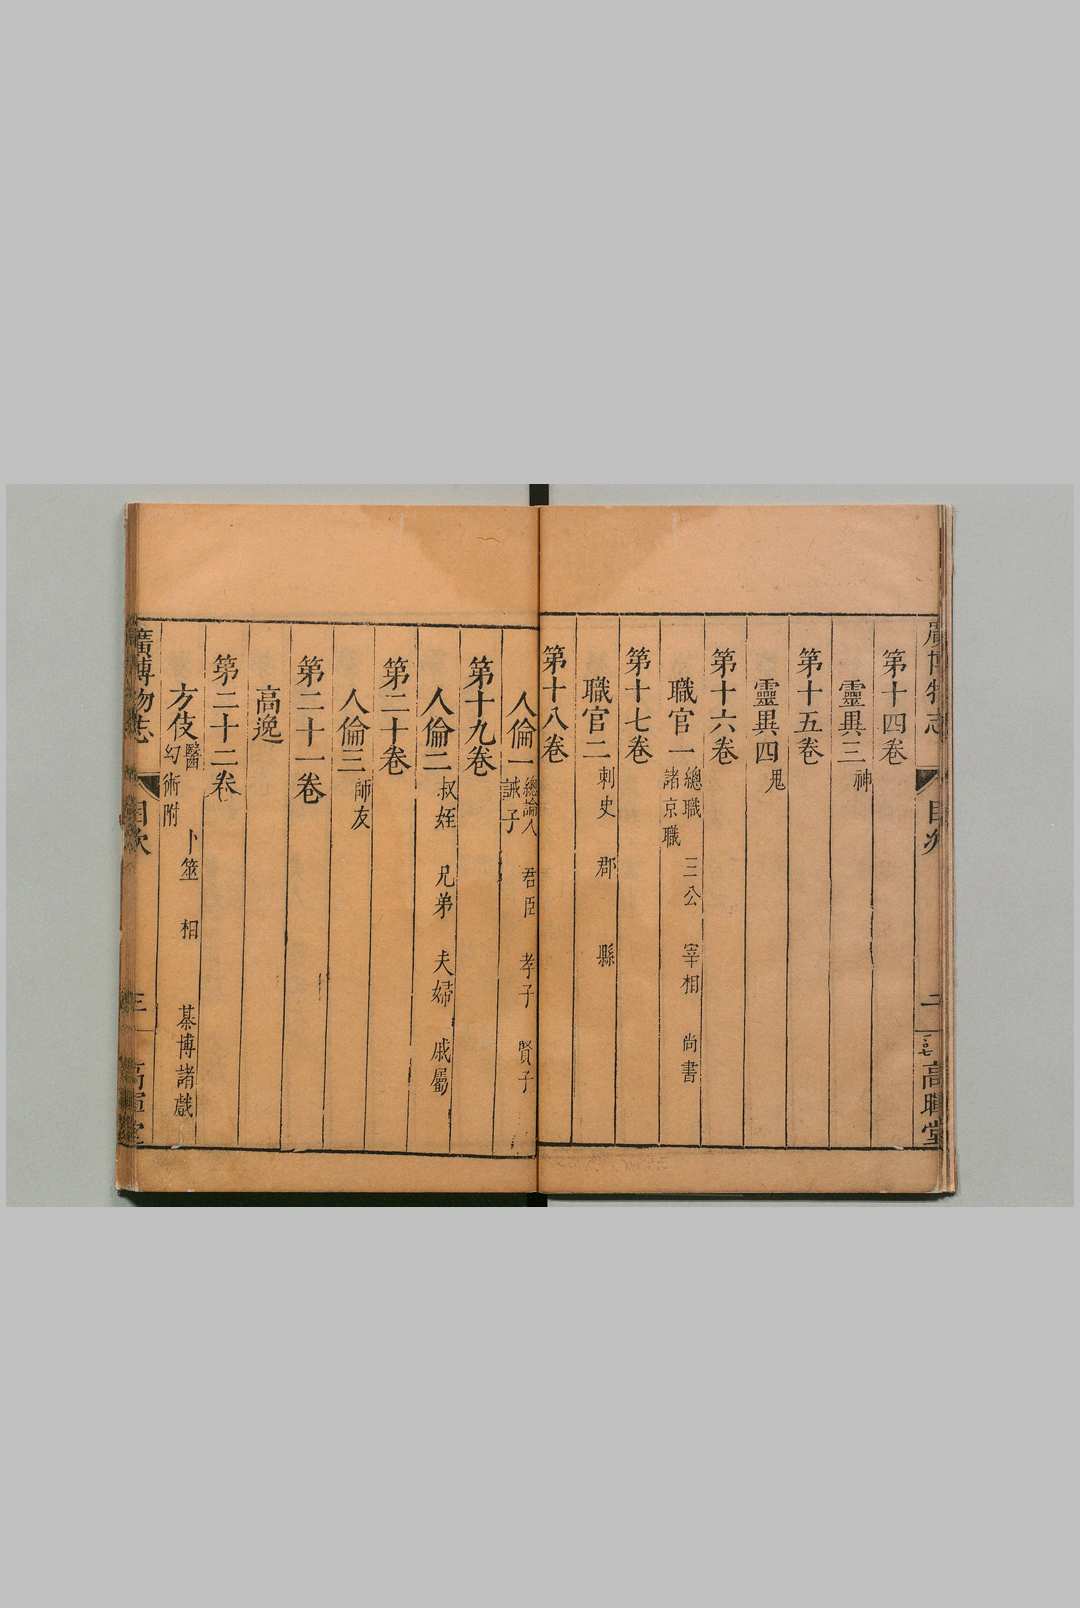 廣博物志 目次 二 高暉堂
第十四卷
靈異三 神
第十五卷
靈異四 鬼
第十六卷
職官一 總職 三公 宰相 尚書 諸京職
第十七卷
職官二 刺史 郡 縣
第十八卷
人倫一 總論人 君臣 孝子 賢子 誡子
第十九卷
人倫二 叔姪 兄弟 夫婦 戚屬
第二十卷
人倫三 師友
第二十一卷
高逸
第二十二卷
方伎 醫 卜筮 相 棊博諸戲 幻術附
廣博物志 目次 三 高暉堂